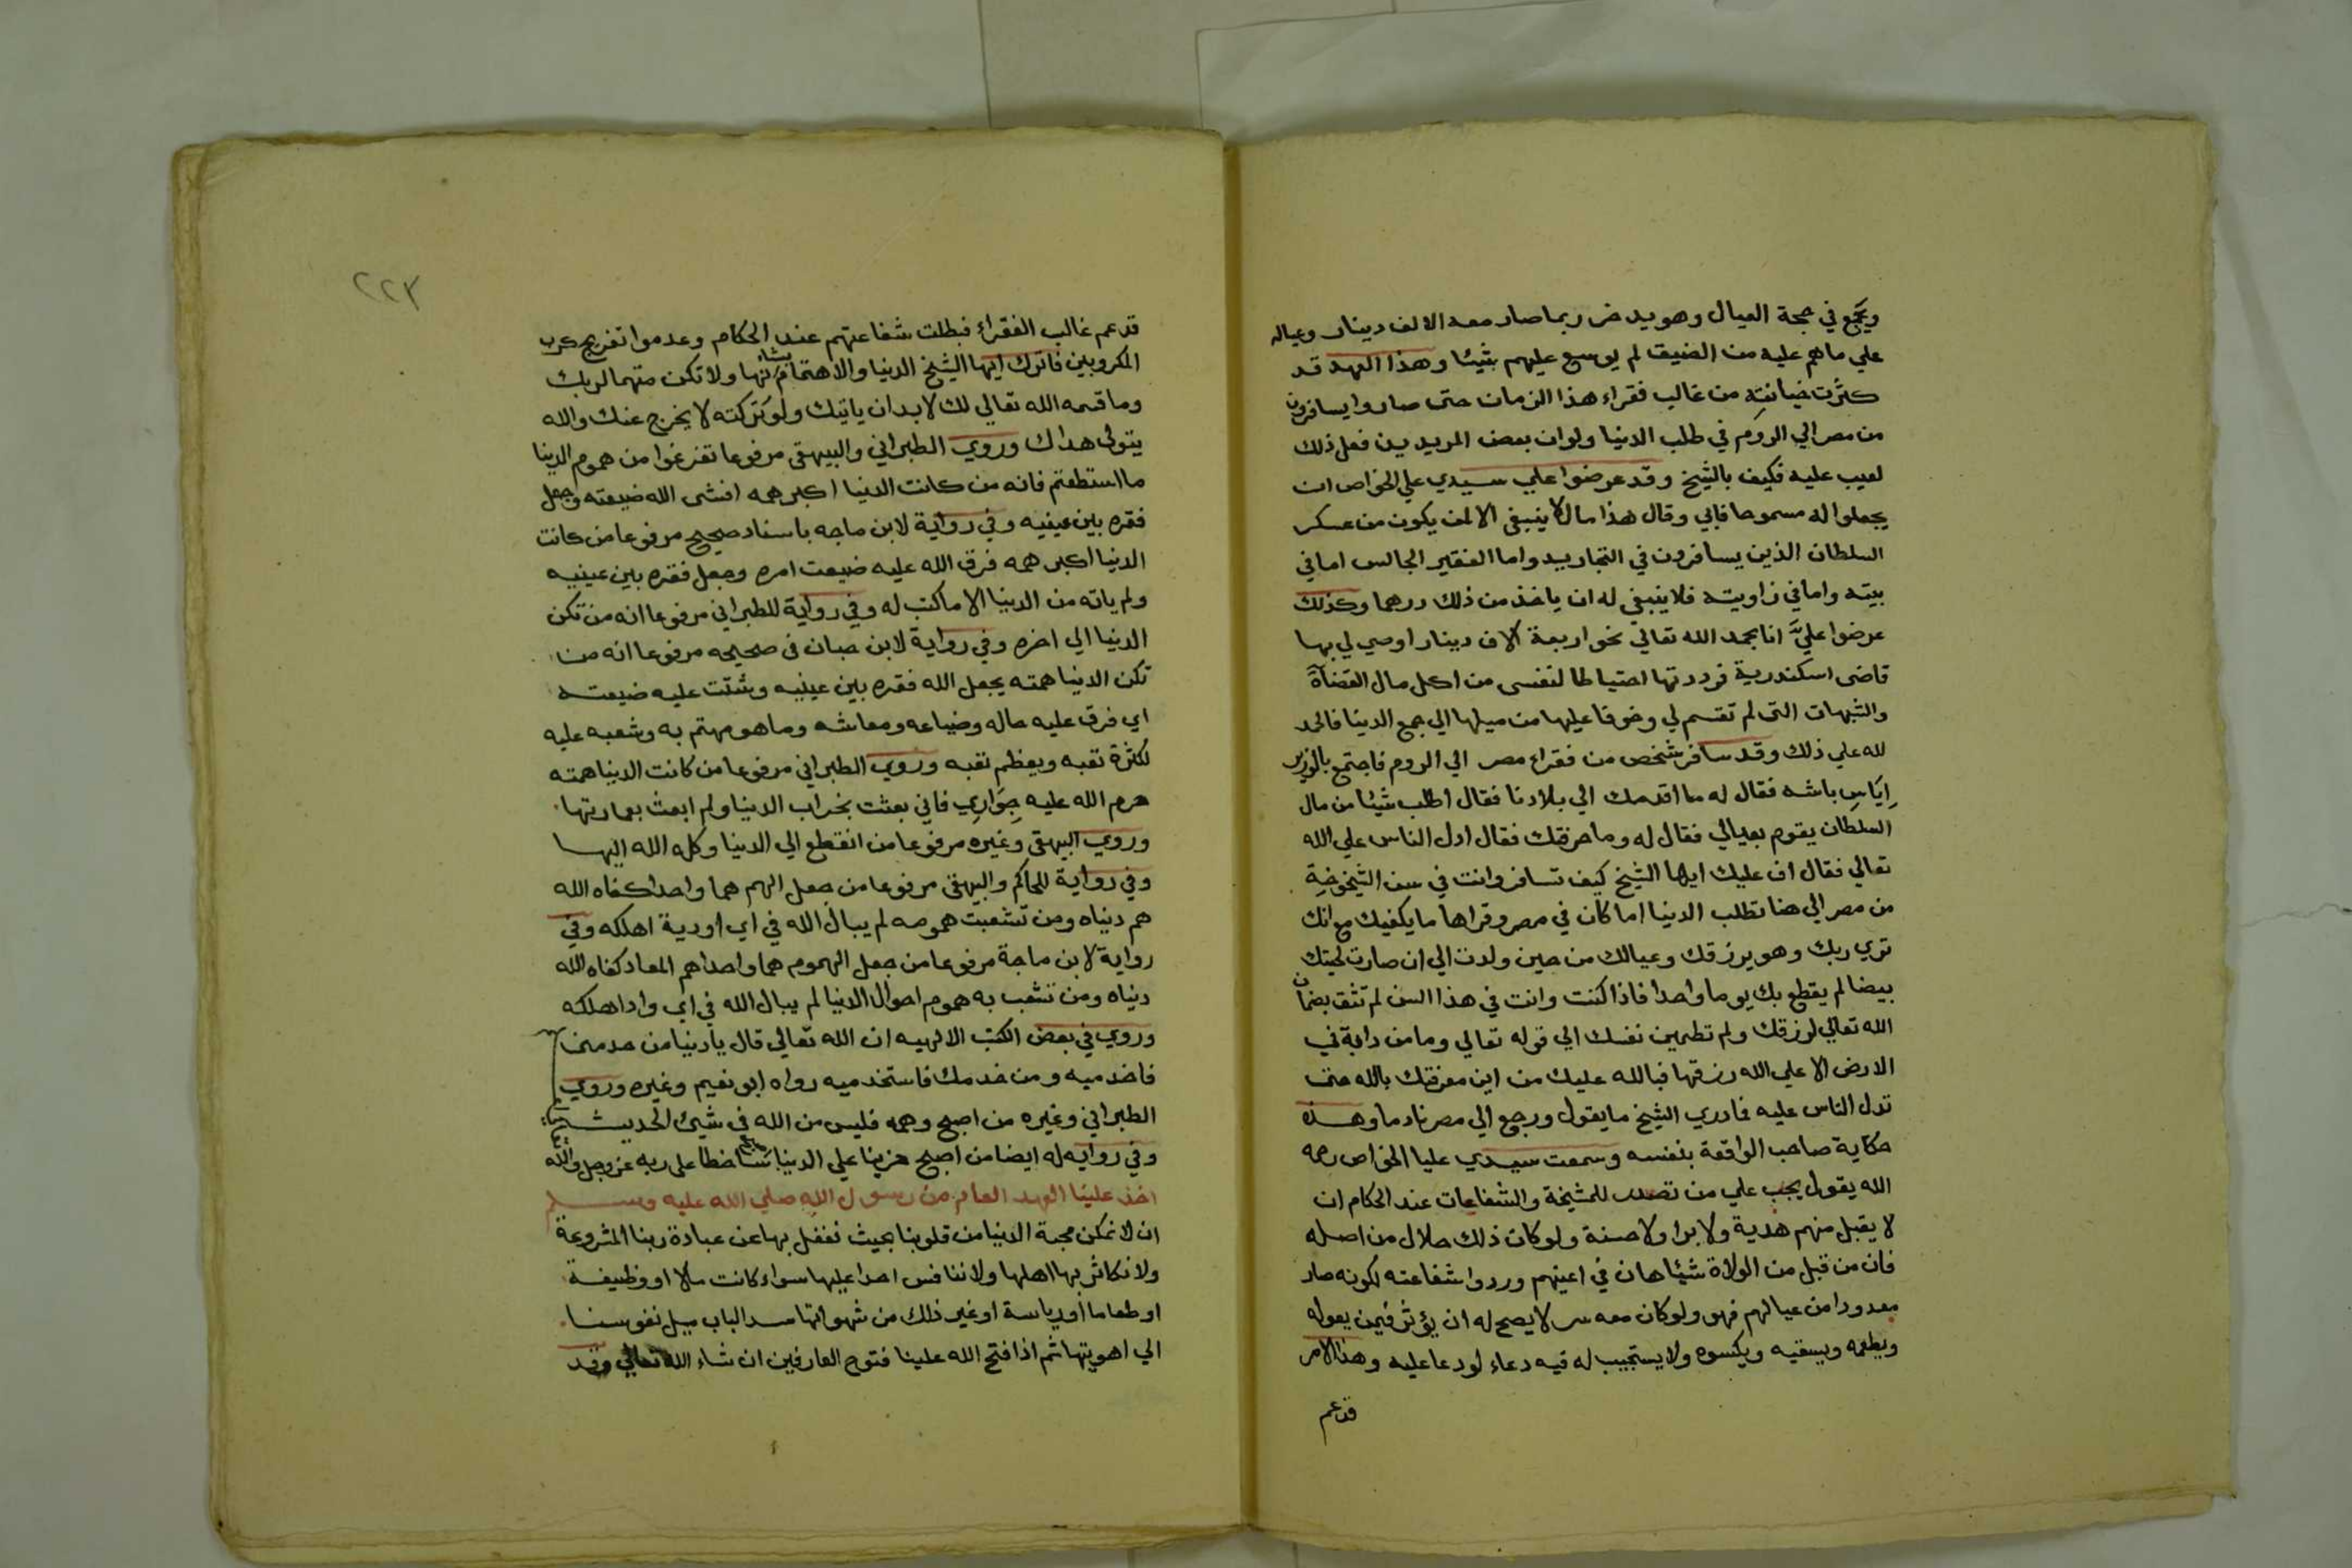 ويجمع في حجة العيال وهو يدخر ربما صار معه الالف دينار وعياله
علي ماهم عليه من الضيق لم يوسع عليهم شيئا وهذا العهد قد
كثرت خيانته من غالب فقراء هذا الزمان حتى صاروا يسافرون
من مصر الي الروم في طلب الدنيا ولو ان بعض المريدين فعل ذلك
لعيب عليه فكيف بالشيخ وقد عرضوا علي سيدي علي الخواص ان
يجعلوا له مسموحا فابي وقال هذا مال لا ينبغي الا لمن يكون من عسكر
السلطان الذين يسافرون في التجاريد واما الفقير الجالس اما في
بيته واما في زاويته فلا ينبغي له ان ياخذ من ذلك درهما وكذلك
عرضوا عليَّ انا بحمد الله تعالي نحو اربعة الاف دينار اوصي لي بها
قاضى اسكندرية فرددتها احتياطا لنفسى من اكل مال القضاة
والشبهات التى لم تقسم لي وخوفا عليها من ميلها الي جمع الدنيا فالحمد
لله علي ذلك وقد سافر شخص من فقراء مصر الي الروم فاجتمع بالوزير
اِيَاسِ باشه فقال له ما اقدمك الي بلادنا فقال اطلب شيئا من مال
السلطان يقوم بعيالي فقال له وما حرفتك فقال ادل الناس علي الله
تعالي فقال اف عليك ايها الشيخ كيف تسافر وانت في سن الشيخوخة
من مصر الي هنا تطلب الدنيا اما كان في مصر وقراها ما يكفيك مع انك
تري ربك وهو يرزقك وعيالك من حين ولدت الي ان صارت لحيتك
بيضا لم يقطع بك يوما واحدا فاذا كنت وانت في هذا السن لم تثق بضمان
الله تعالي لرزقك ولم تطمين نفسك الي قوله تعالي وما من دابة في
الارض الا علي الله رزقها فبالله عليك من اين معرفتك بالله حتى
تدل الناس عليه فما دري الشيخ ما يقول ورجع الي مصر نادما وهذه
حكاية صاحب الواقعة بنفسه وسمعت سيدي عليا الخواص رحمه
الله يقول يجب علي من تصدر للمشيخة والشفاعات عند الحكام ان
لا يقبل منهم هدية ولا برا ولا حسنة ولو كان ذلك حلال من اصله
فان من قبل من الولاة شيئا هان في اعينهم وردوا شفاعته لكونه صار
معدودا من عيالهم فهو ولو كان معه سر لا يصح له ان يؤثر فيمن يعوله
ويطعمه ويسقيه ويكسوه ولا يستجيب له فيه دعاء لو دعا عليه وهذا الامر
قد عم
٢٢٣
قد عم غالب الفقراء فبطلت شفاعتهم عند الحكام وعدموا تفريج كرب
المكروبين فاترك ايها الشيخ الدنيا والاهتمام بشانها ولا تكن متهما لربك
وما قسمه الله تعالي لك لابد ان ياتيك ولو تركته لا يخرج عنك والله
يتولى هداك وروي الطبراني والبيهقى مرفوعا تفرغوا من هموم الدنيا
ما استطعتم فانه من كانت الدنيا اكبر همه افشى الله ضيعته وجعل
فقره بين عينيه وفي رواية لابن ماجه باسناد صحيح مرفوعا من كانت
الدنيا اكبر همه فرق الله عليه ضيعت امره وجعل فقره بين عينيه
ولم ياته من الدنيا الا ما كتب له وفي رواية للطبراني مرفوعا انه من تكن
الدنيا الي اخره وفي رواية لابن حبان فى صحيحه مرفوعا انه من
تكن الدنيا همته يجعل الله فقره بين عينيه وشتت عليه ضيعته
اي فرق عليه حاله وضياعه ومعاشه وما هو مهتم به وشعبه عليه
لكثرة تعبه ويعظم تعبه وروي الطبراني مرفوعا من كانت الدنيا همته
حرم الله عليه جِوَارِي فاني بعثت بخراب الدنيا ولم ابعث بعمارتها
وروي البيهقى وغيره مرفوعا من انقطع الي الدنيا وكله الله اليها
وفي رواية للحاكم والبيهقى مرفوعا من جعل الهم هما واحدا كفاه الله
هم دنياه ومن تشعبت همومه لم يبال الله في اي اودية اهلكه وفي
رواية لابن ماجة مرفوعا من جعل الهموم هما واحدا هم المعاد كفاه الله
دنياه ومن تشعب به هموم احوال الدنيا لم يبال الله في اي واد اهلكه
وروي في بعض الكتب الالهيه ان الله تعالي قال يا دنيا من خدمنى
فاخدميه ومن خدمك فاستخدميه رواه ابو نعيم وغيره وروي
الطبراني وغيره من اصبح وهمه فليس من الله فى شيئ الحديث
وفي روايه له ايضا من اصبح حزينا علي الدنيا ساخطا على ربه عز وجل والله
اخذ علينا العهد العام من رسول الله صلي الله عليه وسلم
ان لا نمكن محبة الدنيا من قلوبنا بحيث نغفل بها عن عبادة ربنا المشروعة
ولا نكاثر بها اهلها ولا ننافس احدا عليها سواء كانت مالا او وظيفة
او طعاما او رياسة او غير ذلك من شهواتها سدا لباب ميل نفوسنا
الي اهويتها ثم اذا فتح الله علينا فتوح العارفين ان شاء الله تعالي وقد